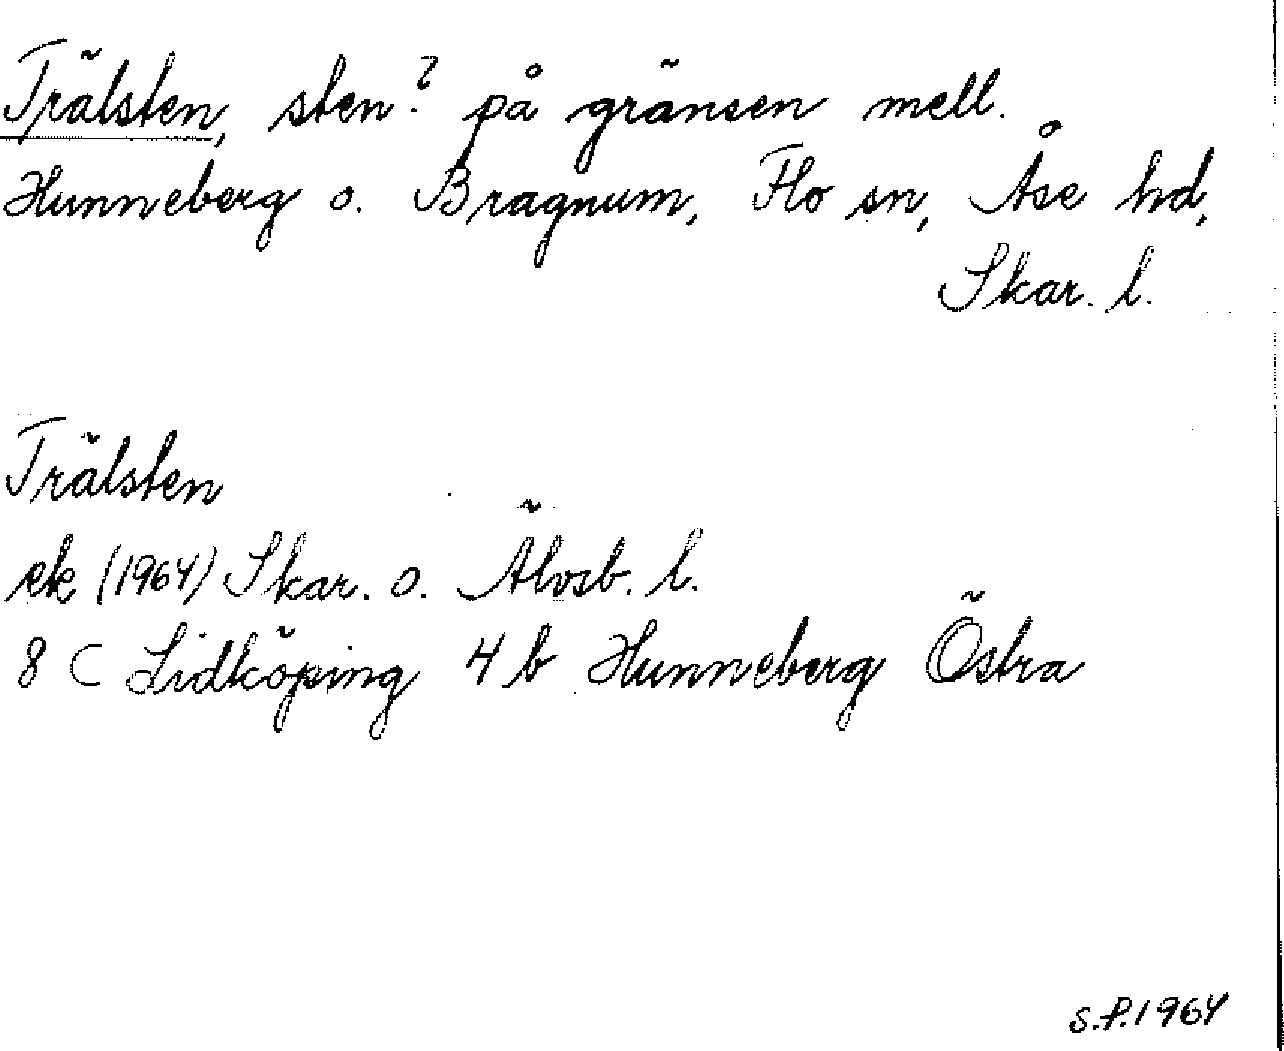 Trälsten, sten? på gränsen mell.
Hunneberg o. Bragnum, Flo sn, Åse hd,
Skar. l.
Trälsten
ek (1964) Skar. o. Älvsb. l.
8 C Lidköping 4 b Hunneberg Östra
S.P. 1964